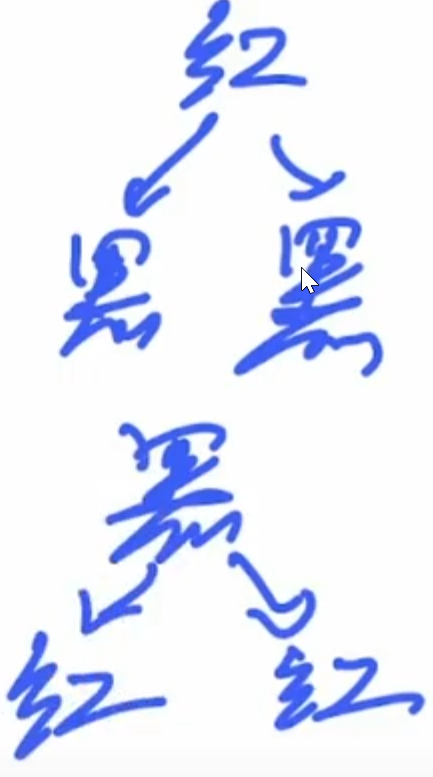 红
黑 黑
黑
红 红